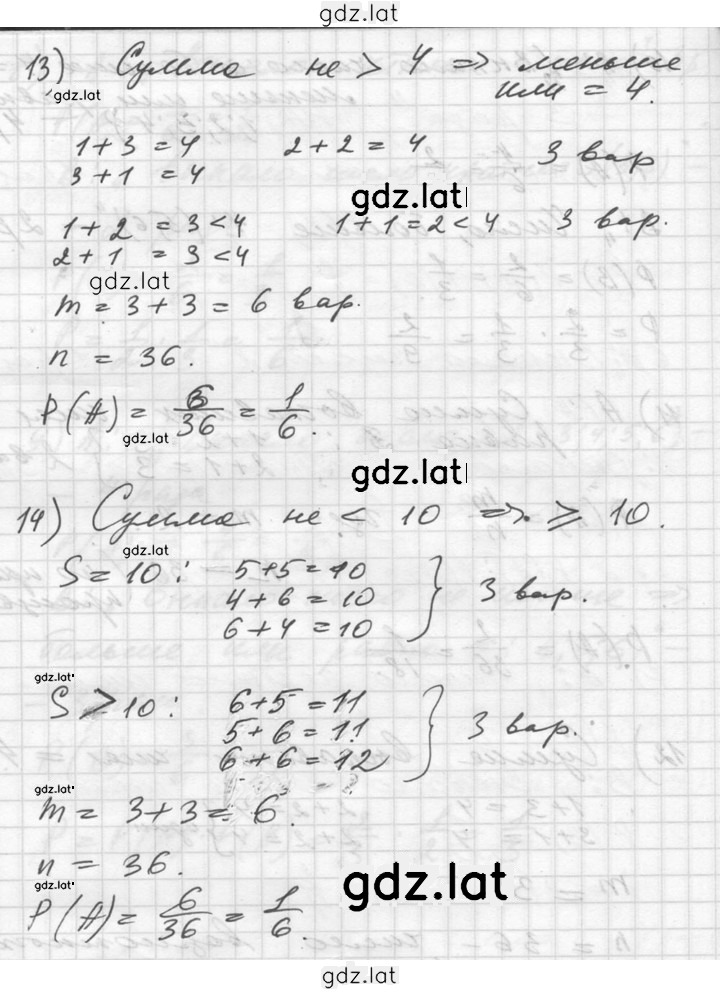 gdz.lat
13) Сумма не > 4 => меньше
или = 4.
gdz.lat
1+3 = 4 2+2 = 4 3 вар
3+1 = 4
gdz.lat
1+2 = 3<4 1+1=2<4 3 вар.
2+1 = 3<4
gdz.lat
m = 3+3 = 6 вар.
n = 36.
P(A) = 6/36 = 1/6.
gdz.lat
gdz.lat
14) Сумма не < 10 => ⩾ 10.
gdz.lat
S=10: 5+5=10
4+6=10 } 3 вар.
6+4=10
gdz.lat
S>10: 6+5=11
5+6=11 } 3 вар.
6+6=12
m = 3+3 = 6.
n = 36.
gdz.lat
gdz.lat
P(A) = 6/36 = 1/6.
gdz.lat